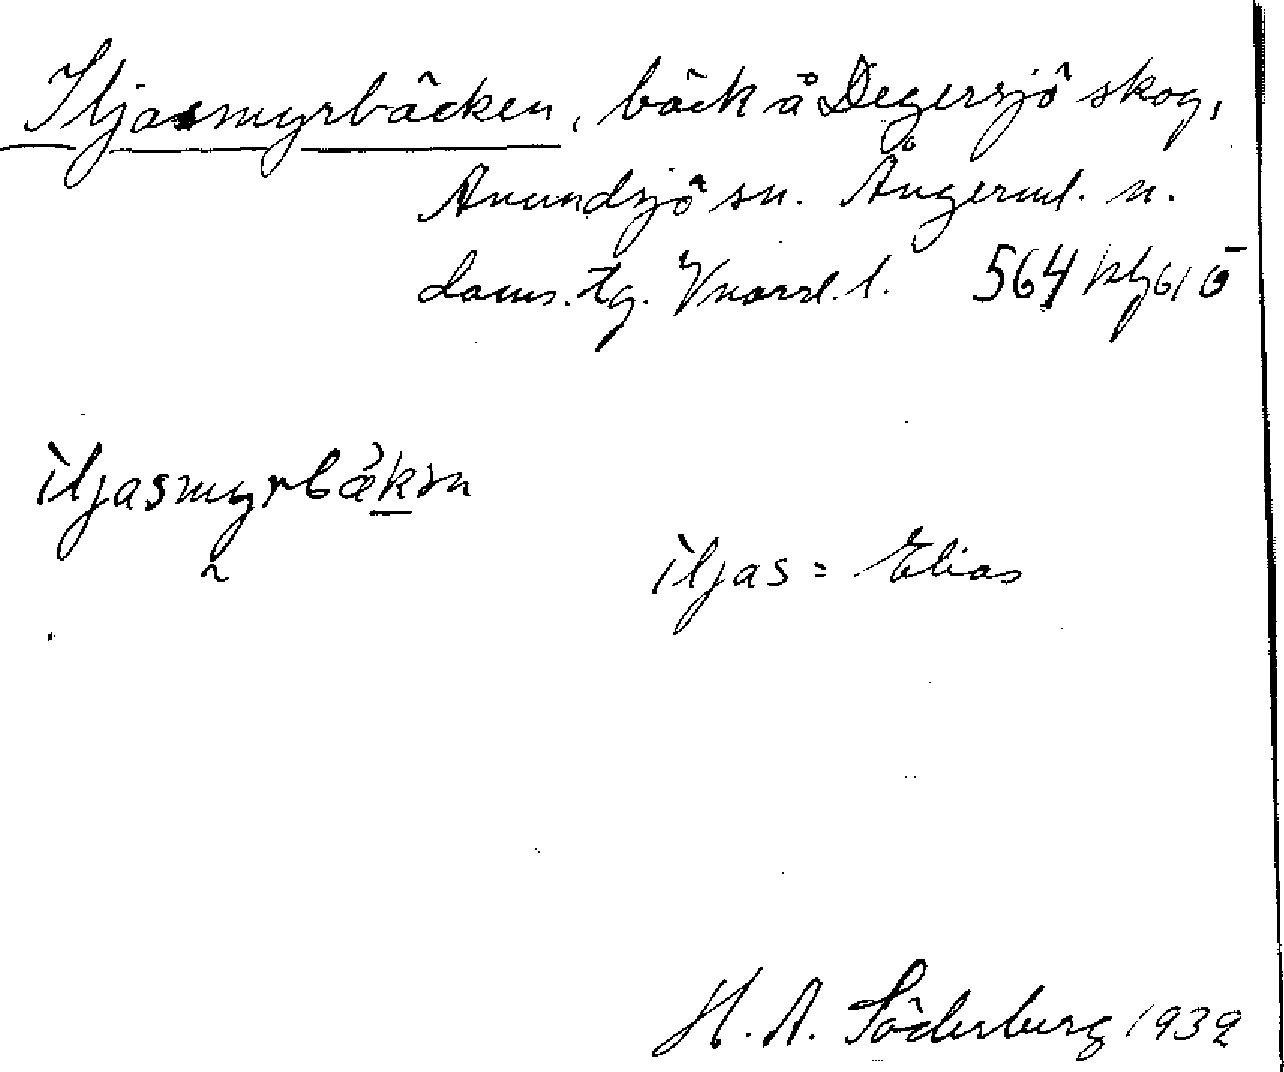 Iljasmyrbäcken, bäck å Degersjö skog,
Anundsjö sn. Ångerml. n.
doms. tg. Vnorrl. l. 564
iljasmyrbækən
iljas = Elias
H. A. Söderberg 1932